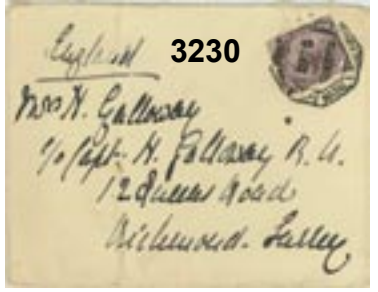 England 3230
Mrs H. Galloway
c/o Capt. H. Galloway R.A.
12 Queens Road
Richmond. Surrey